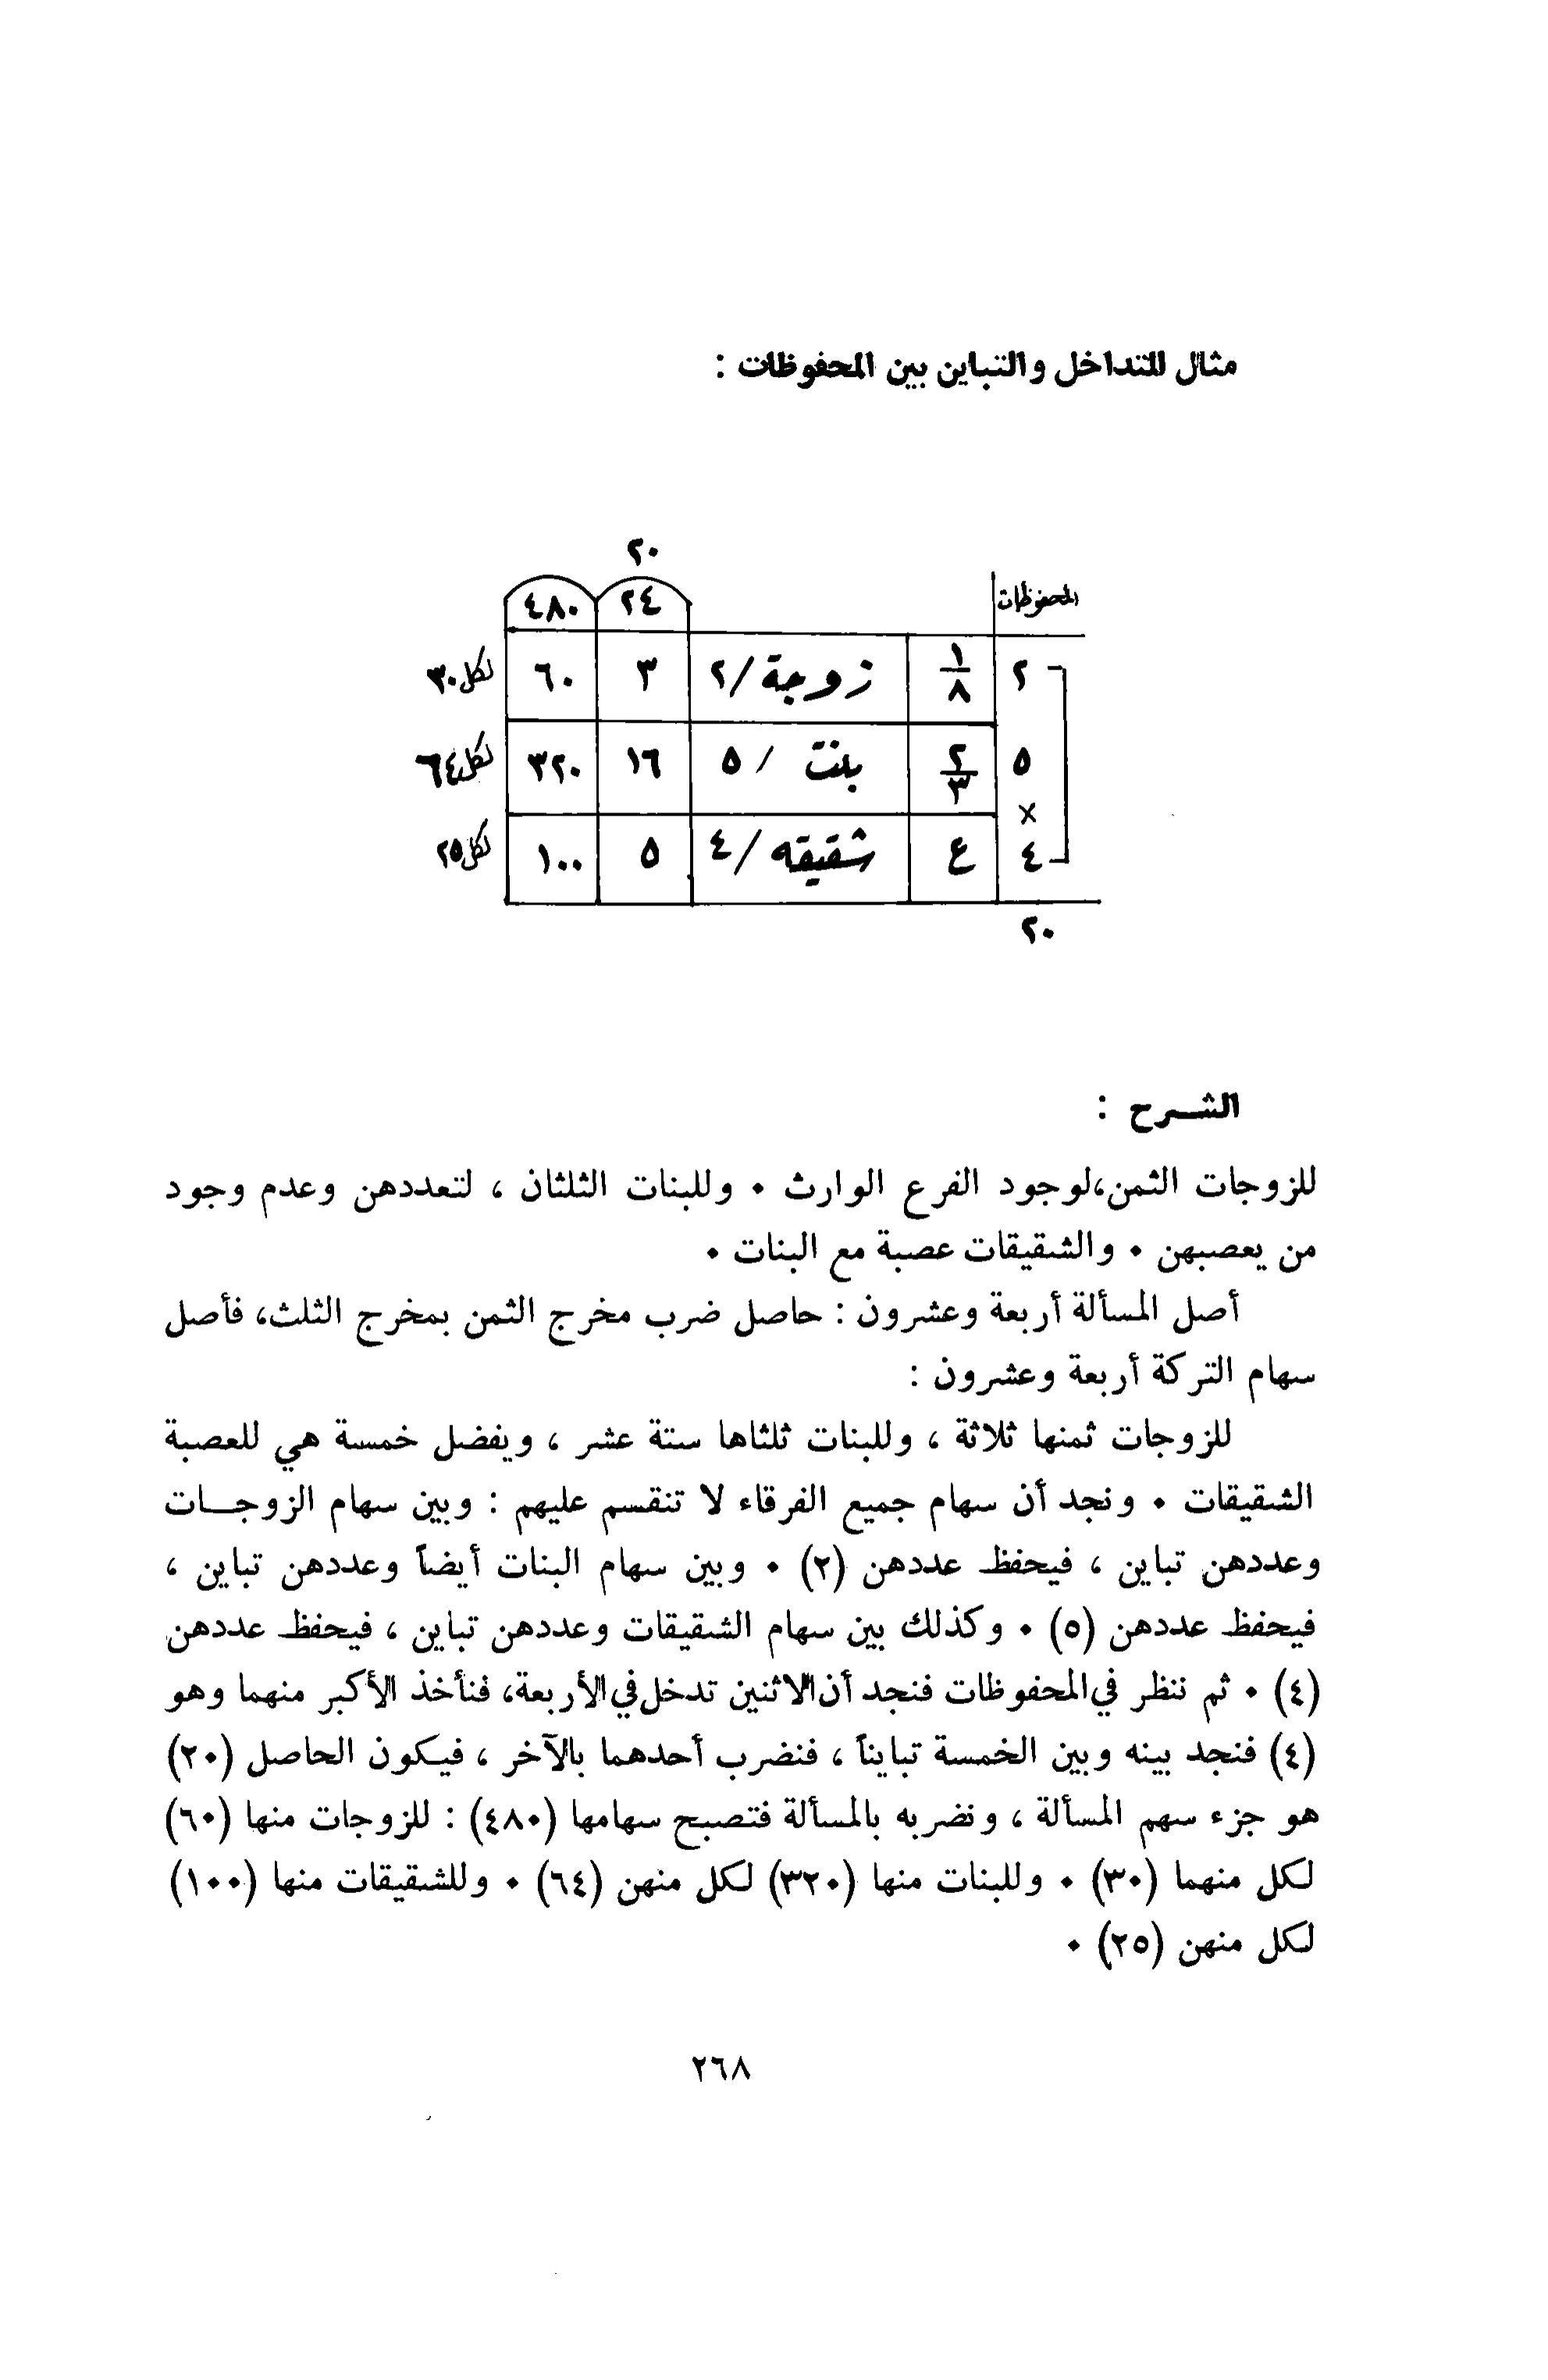 مثال للتداخل والتباين بين المحفوظات :
٢٠
المحفوظات ٢٤ ٤٨٠
٢ ١/٨ زوجة / ٢ ٣ ٦٠ لكل ٣٠
٥ ٢/٣ بنت / ٥ ١٦ ٣٢٠ لكل ٦٤
×
٤ ع شقيقه / ٤ ٥ ١٠٠ لكل ٢٥
٢٠
الشـرح :
للزوجات الثمن،لوجود الفرع الوارث • وللبنات الثلثان ، لتعددهن وعدم وجود
من يعصبهن • والشقيقات عصبة مع البنات •
أصل المسألة أربعة وعشرون : حاصل ضرب مخرج الثمن بمخرج الثلث، فأصل
سهام التركة أربعة وعشرون :
للزوجات ثمنها ثلاثة ، وللبنات ثلثاها ستة عشر ، ويفضل خمسة هي للعصبة
الشقيقات • ونجد أن سهام جميع الفرقاء لا تنقسم عليهم : وبين سهام الزوجـات
وعددهن تباين ، فيحفظ عددهن (٢) • وبين سهام البنات أيضاً وعددهن تباين ،
فيحفظ عددهن (٥) • وكذلك بين سهام الشقيقات وعددهن تباين ، فيحفظ عددهن
(٤) • ثم ننظر في المحفوظات فنجد أن الاثنين تدخل في الأربعة، فنأخذ الأكبر منهما وهو
(٤) فنجد بينه وبين الخمسة تبايناً ، فنضرب أحدهما بالآخر ، فيكون الحاصل (٢٠)
هو جزء سهم المسألة ، ونضربه بالمسألة فتصبح سهامها (٤٨٠) : للزوجات منها (٦٠)
لكل منهما (٣٠) • وللبنات منها (٣٢٠) لكل منهن (٦٤) • وللشقيقات منها (١٠٠)
لكل منهن (٢٥) •
٢٦٨